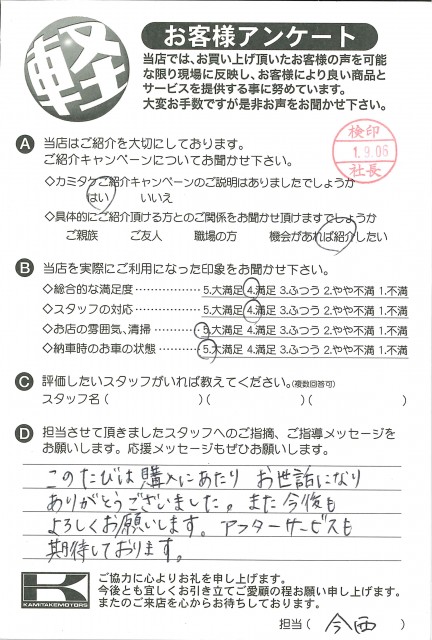 軽
お客様アンケート
当店では、お買い上げ頂いたお客様の声を可能
な限り現場に反映し、お客様により良い商品と
サービスを提供する事に努めています。
大変お手数ですが是非お声をお聞かせ下さい。
A 当店はご紹介を大切にしております。
ご紹介キャンペーンについてお聞かせ下さい。
検印
1.9.06
社長
◇カミタケご紹介キャンペーンのご説明はありましたでしょうか
はい いいえ
◇具体的にご紹介頂ける方とのご関係をお聞かせ頂けますでしょうか
ご親族 ご友人 職場の方 機会があれば紹介したい
B 当店を実際にご利用になった印象をお聞かせ下さい。
◇総合的な満足度 5.大満足 4.満足 3.ふつう 2.やや不満 1.不満
◇スタッフの対応 5.大満足 4.満足 3.ふつう 2.やや不満 1.不満
◇お店の雰囲気、清掃 5.大満足 4.満足 3.ふつう 2.やや不満 1.不満
◇納車時のお車の状態 5.大満足 4.満足 3.ふつう 2.やや不満 1.不満
C 評価したいスタッフがいれば教えてください。(複数回答可)
スタッフ名( )( )( )
D 担当させて頂きましたスタッフへのご指摘、ご指導メッセージを
お願いします。応援メッセージもぜひお願いします。
このたびは購入にあたり お世話になり
ありがとうございました。また今後も
よろしくお願いします。アフターサービスも
期待しております。
K
KAMITAKEMOTORS
ご協力に心よりお礼を申し上げます。
今後とも宜しくお引き立てご愛顧の程お願い申し上げます。
またのご来店を心からお待ちしております。
担当( 今西 )